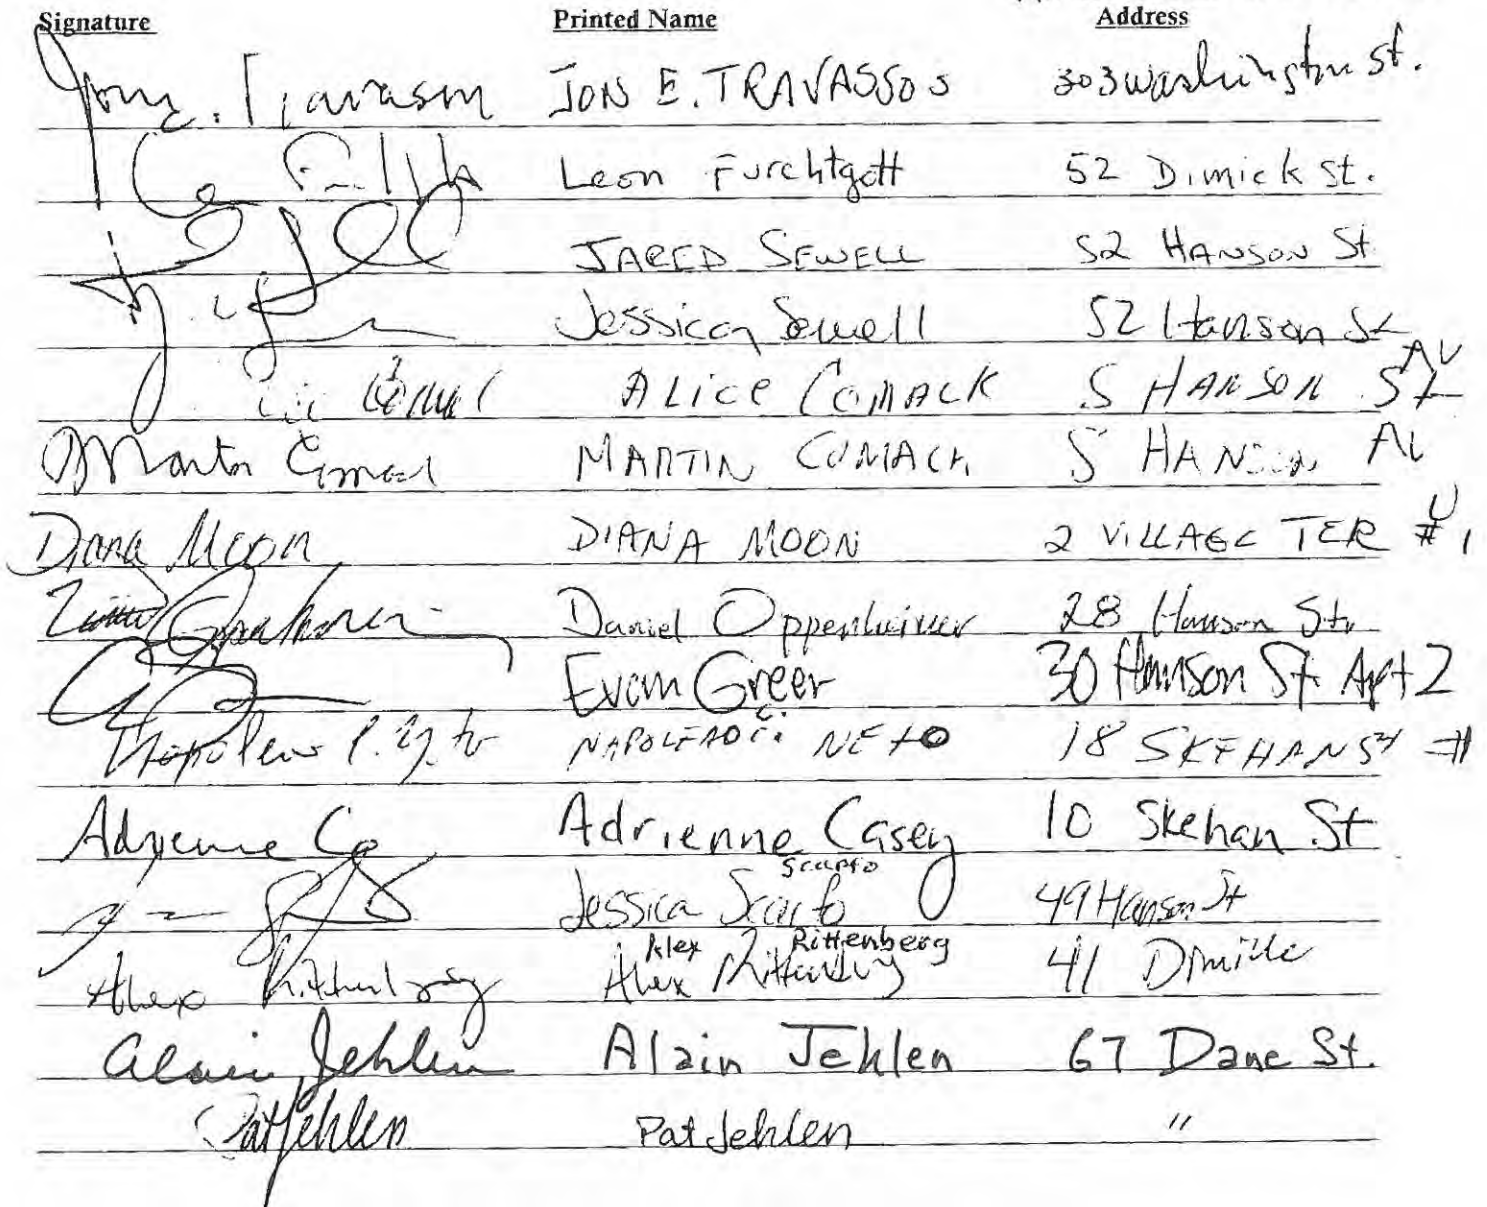 Signature Printed Name Address
Jon E. Travassos JON E. TRAVASSOS 303 Washington St.
Leon Furchtgott 52 Dimick St.
JARED SEWELL 52 HANSON St
Jessica Sewell 52 Hanson St
ALICE COMACK 5 HANSON St AV
Martin Comack MARTIN COMACK 5 HANSON AV
Diana Moon DIANA MOON 2 VILLAGE TER #1
Daniel Oppenheimer 28 Hanson St
Evan Greer 30 Hanson St Apt 2
NAPOLEAO C. NETO 18 SKEHAN ST #1
Adrienne Ca Adrienne Casey 10 Skehan St
Scarfo
Jessica Scarfo 49 Hanson St
Alex Rittenberg
Alex Rittenberg Alex Rittenberg 41 Dimick
Alain Jehlen Alain Jehlen 67 Dane St.
Pat Jehlen Pat Jehlen "